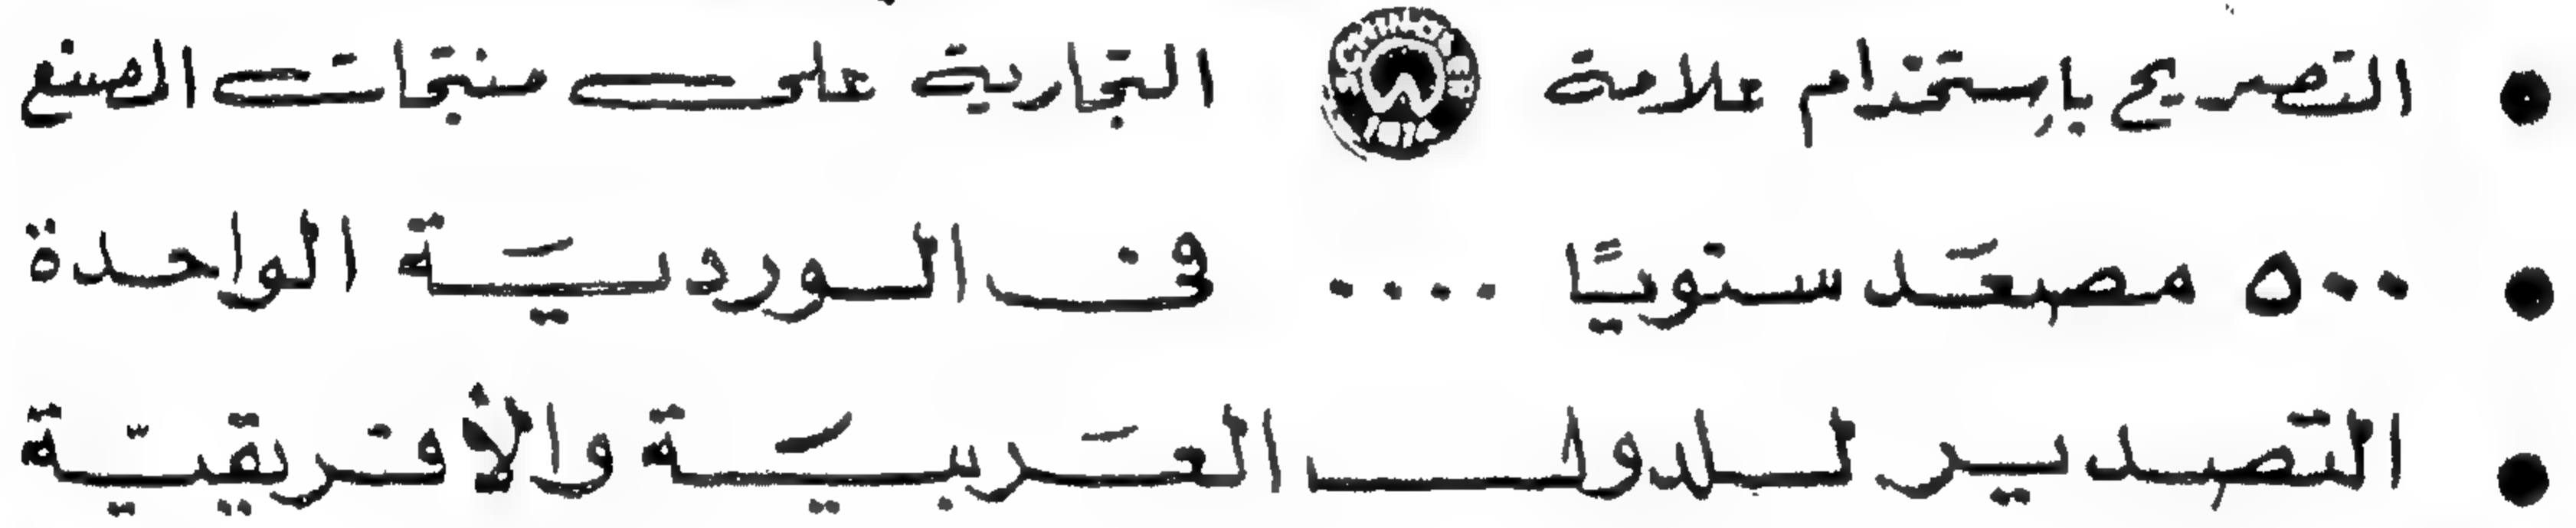 • التصريح بإستخدام علامة SCHINDLER التجارية على منتجات المصنع
• ٥٠٠ مصعَد سنويًا .... في الورديَة الواحدة
• التصدير للدول العَربيَة والأفريقيّة